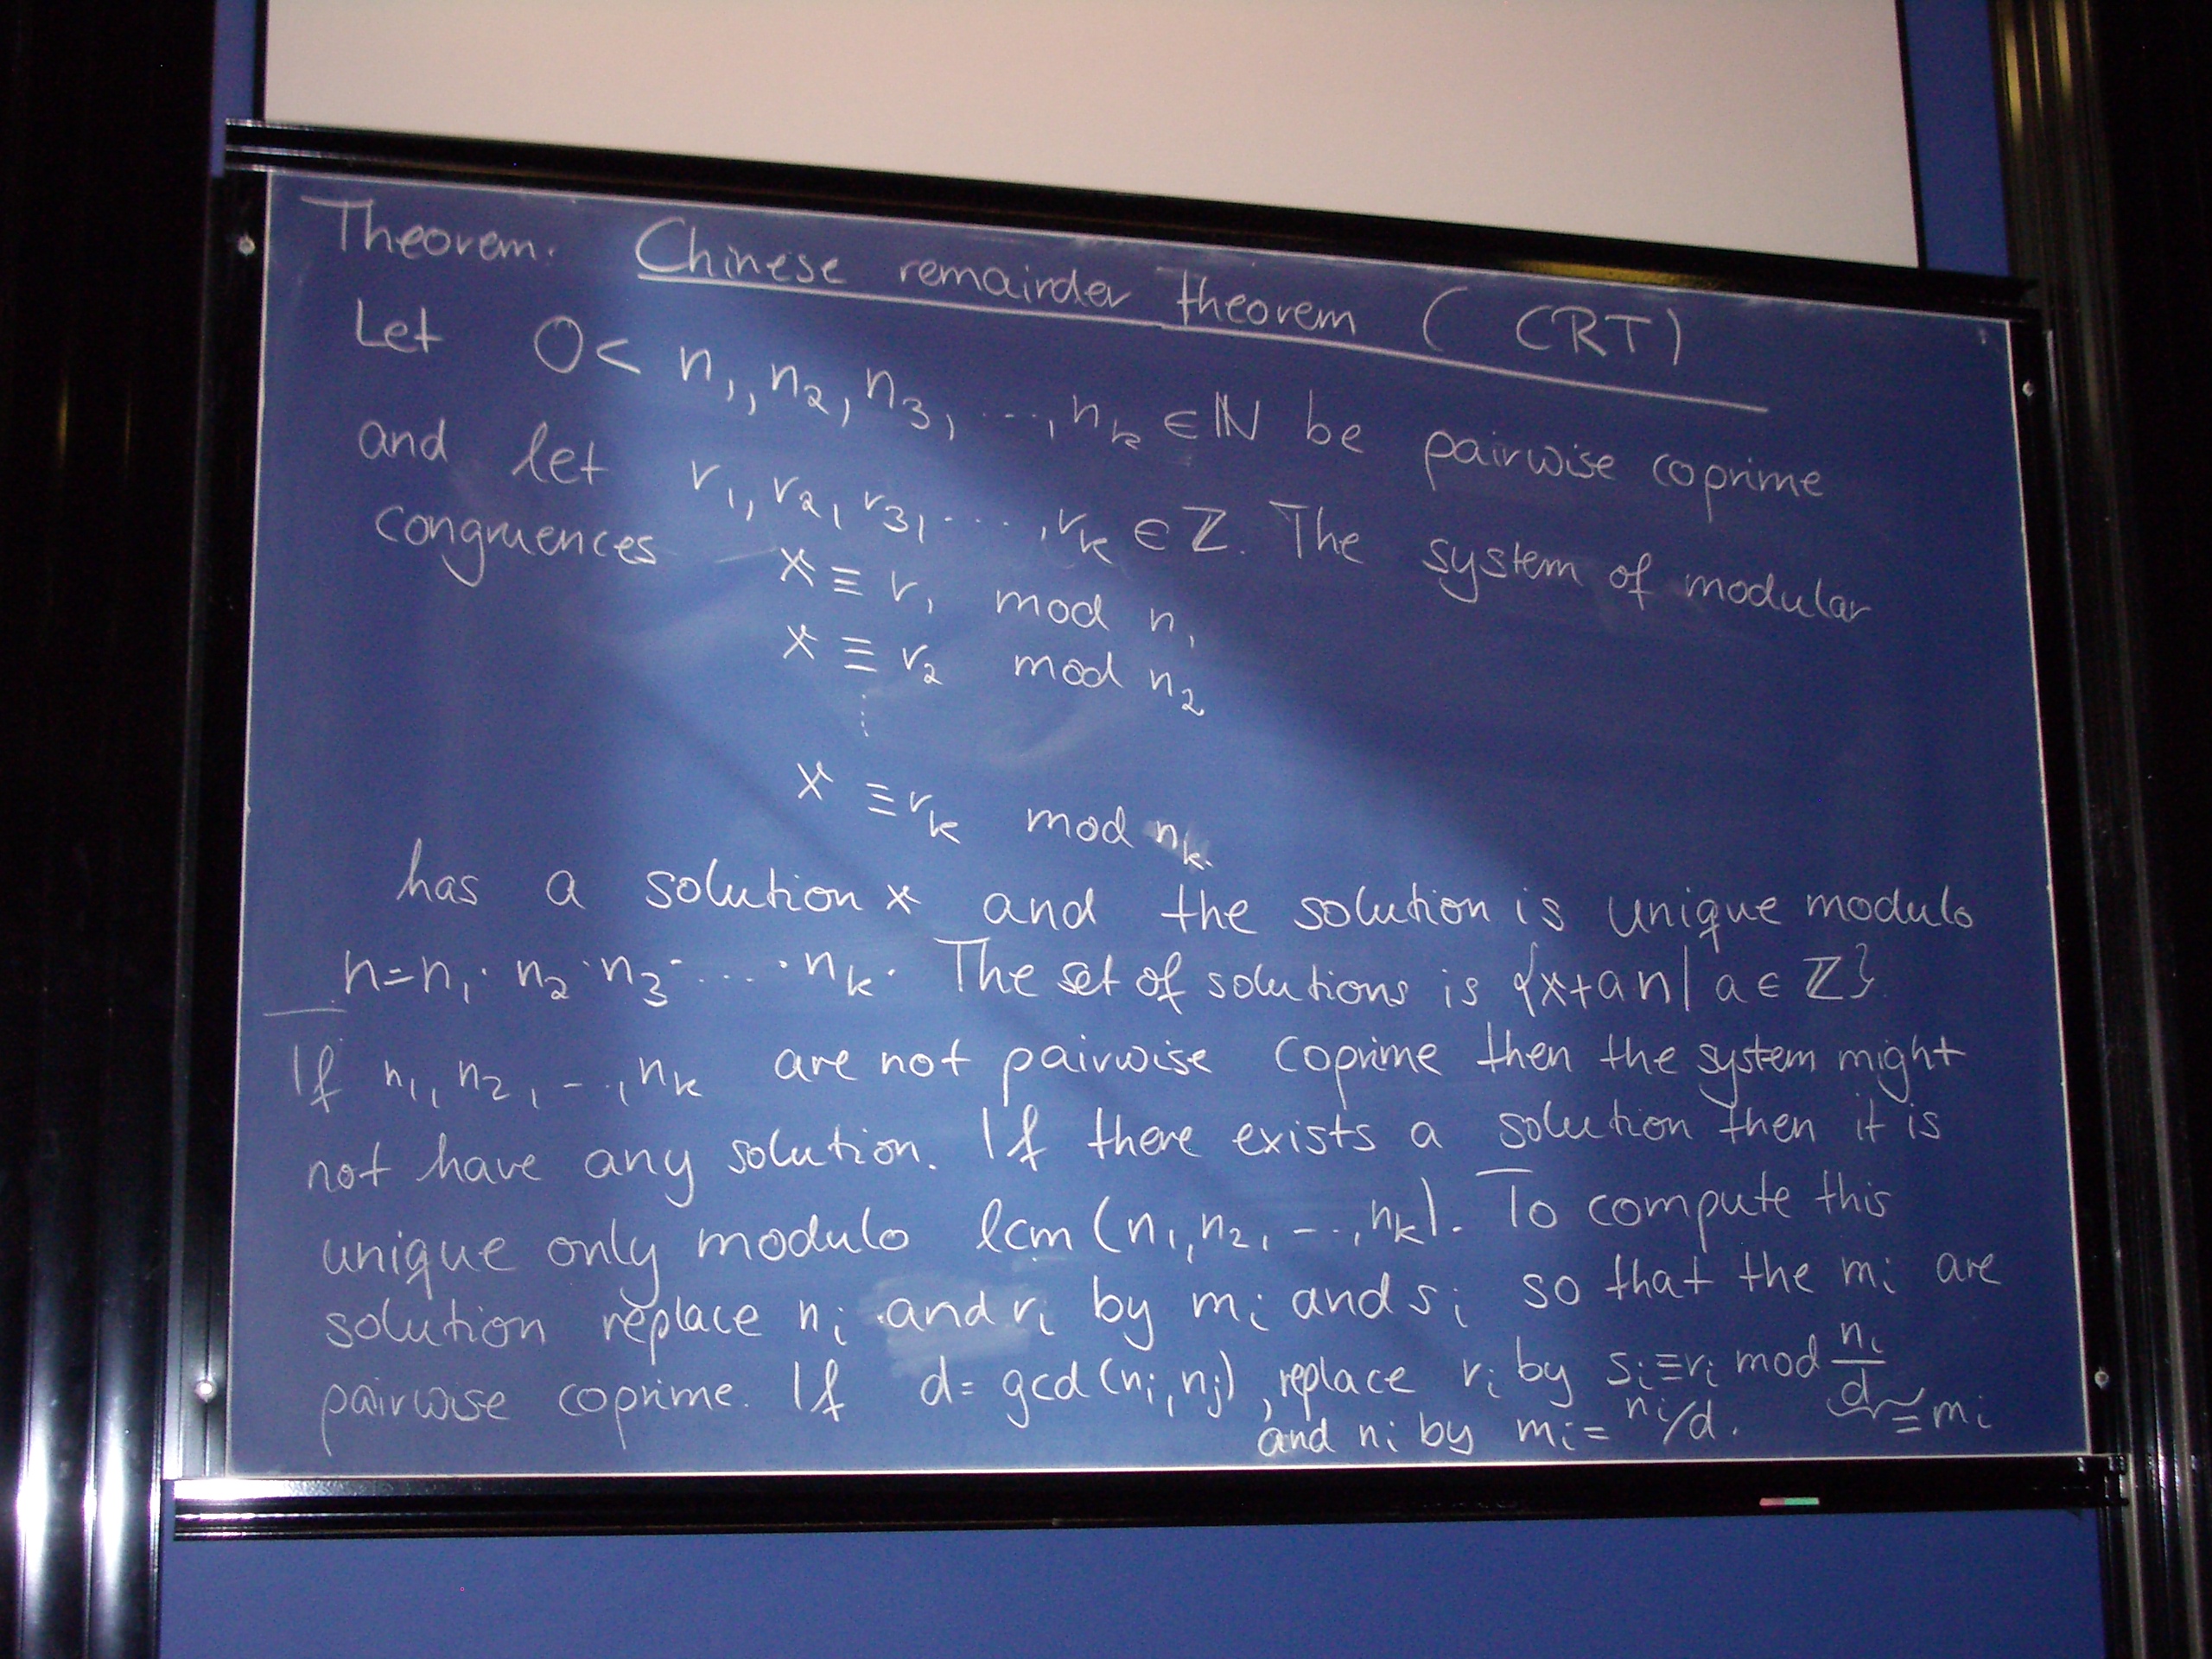 Theorem. Chinese remainder theorem (CRT)
Let 0 < n₁, n₂, n₃, ..., nₖ ∈ ℕ be pairwise coprime
and let r₁, r₂, r₃, ..., rₖ ∈ ℤ. The system of modular
congruences
x ≡ r₁ mod n₁
x ≡ r₂ mod n₂
⋮
x ≡ rₖ mod nₖ.
has a solution x and the solution is unique modulo
n = n₁ · n₂ · n₃ · ... · nₖ. The set of solutions is {x+an | a ∈ ℤ}
If n₁, n₂, ..., nₖ are not pairwise coprime then the system might
not have any solution. If there exists a solution then it is
unique only modulo lcm (n₁, n₂, ..., nₖ). To compute this
solution replace nᵢ and rᵢ by mᵢ and sᵢ so that the mᵢ are
pairwise coprime. If d = gcd (nᵢ, nⱼ), replace rᵢ by sᵢ ≡ rᵢ mod nᵢ/d = mᵢ
and nᵢ by mᵢ = nᵢ/d.